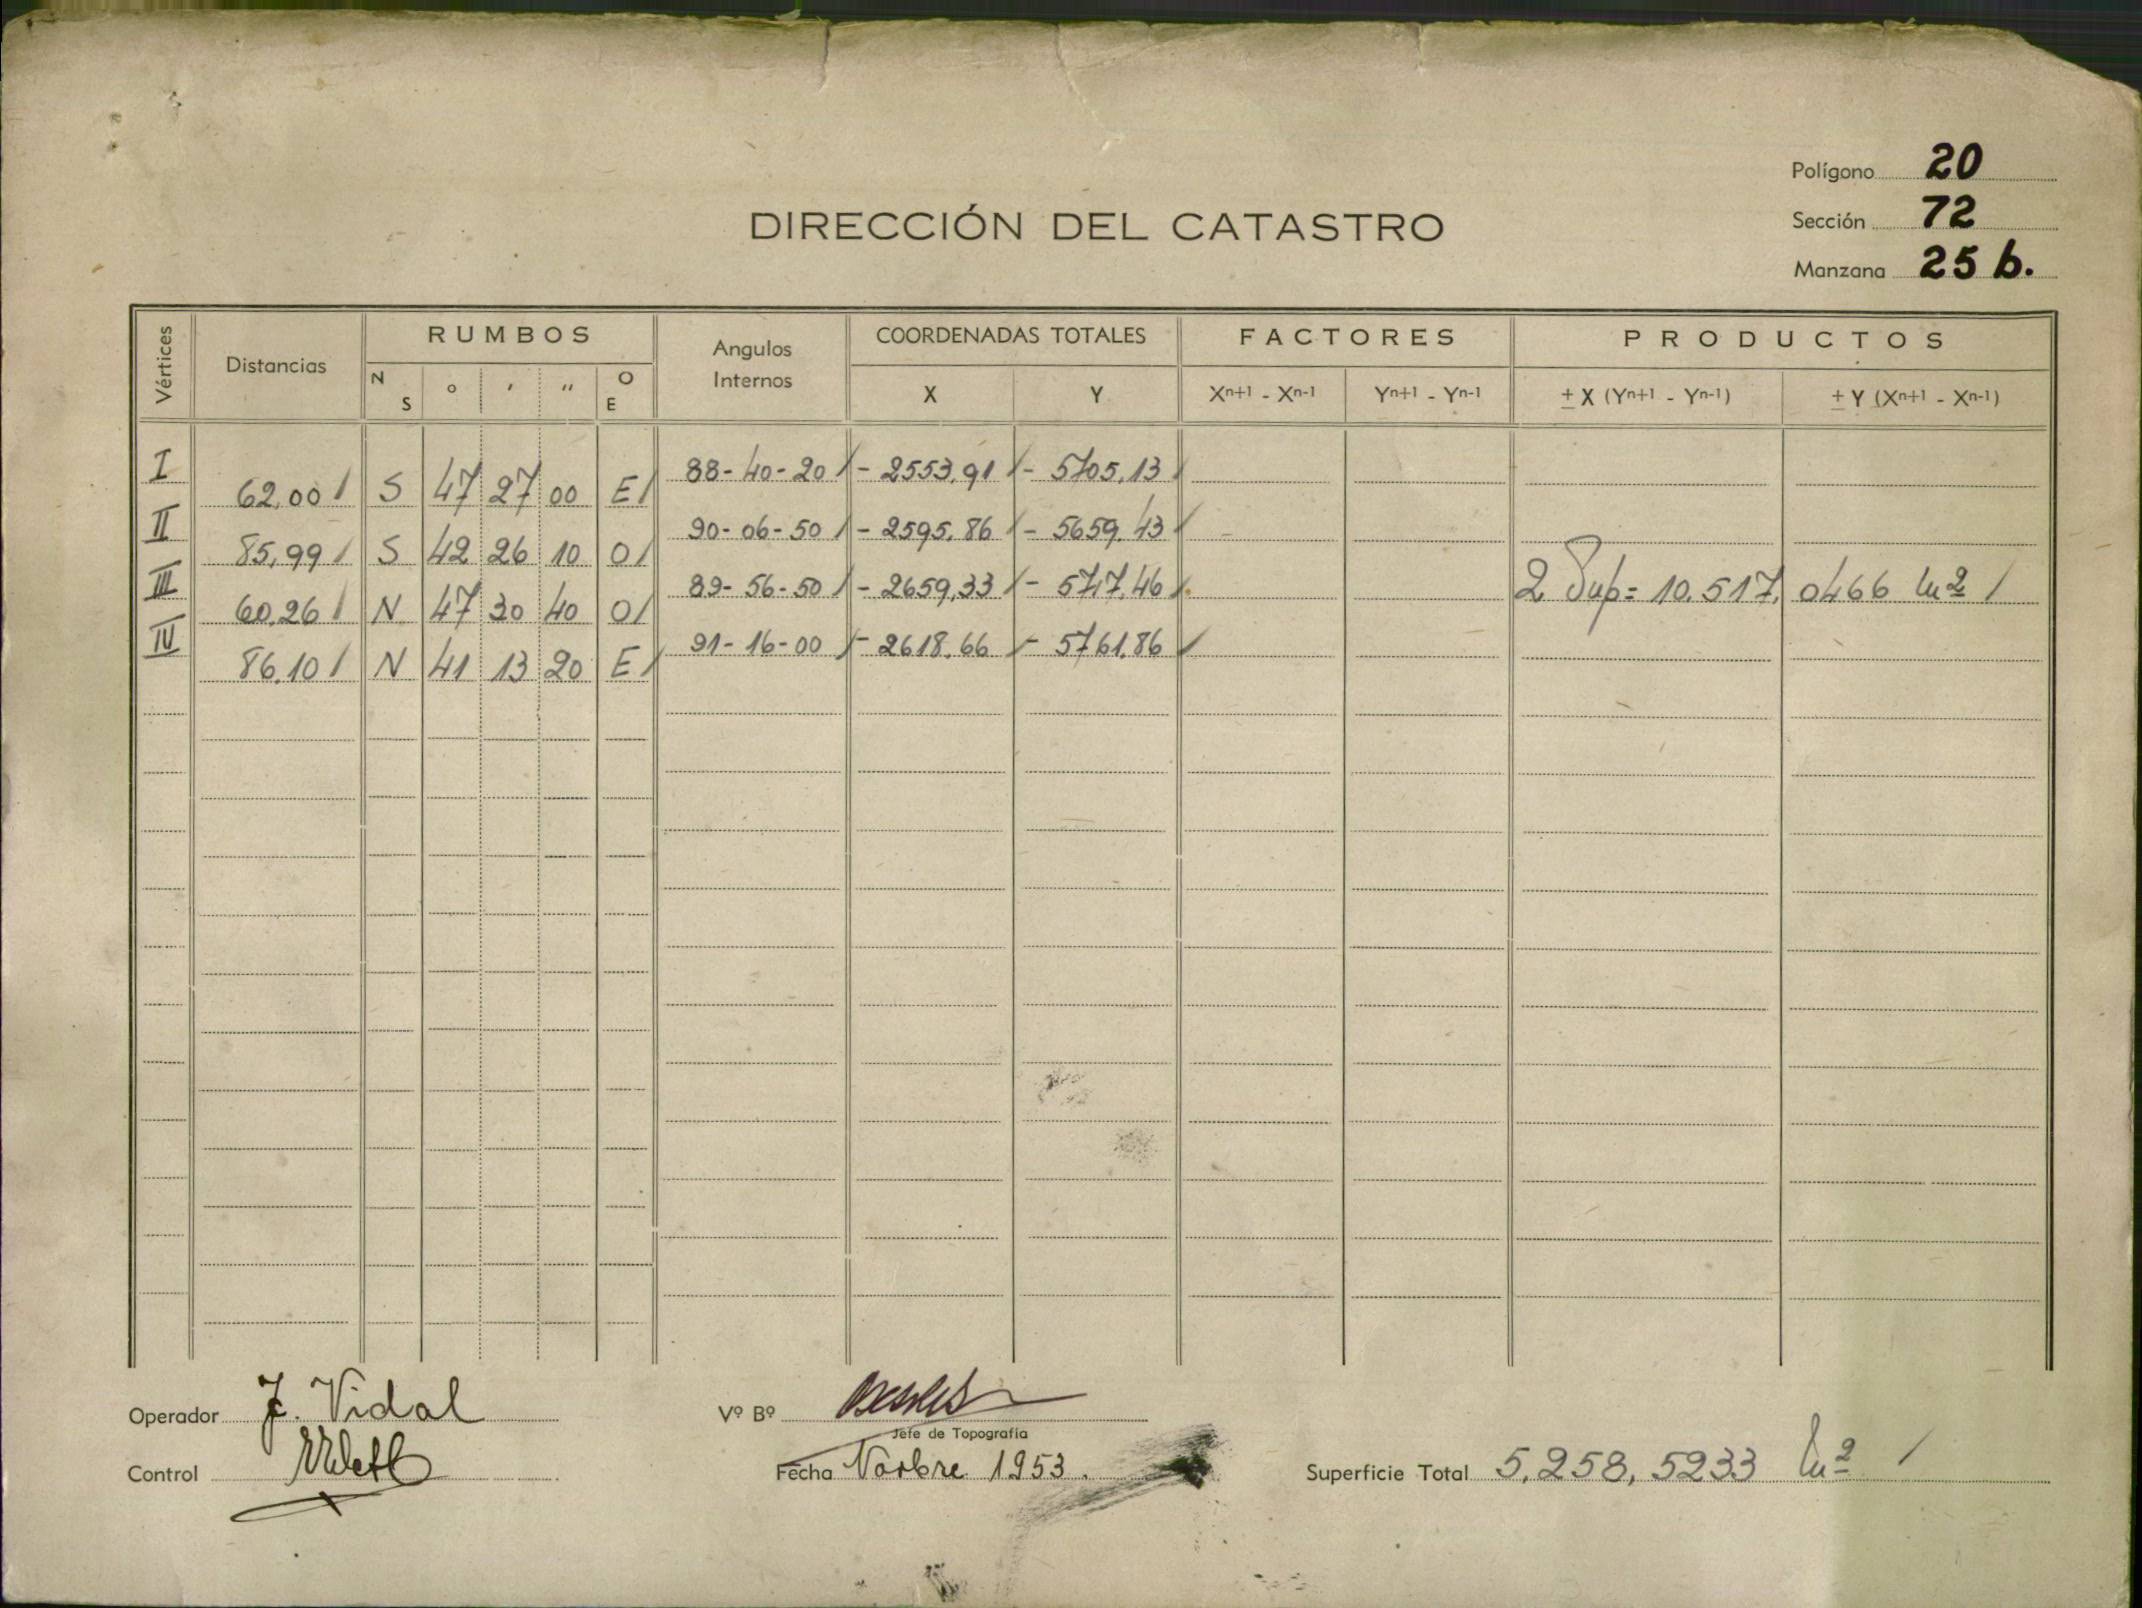 Polígono 20
Sección 72
Manzana 25 b.
DIRECCIÓN DEL CATASTRO
Vértices Distancias RUMBOS Angulos Internos COORDENADAS TOTALES FACTORES PRODUCTOS
N S ° ' " O E X Y Xn+1 - Xn-1 Yn+1 - Yn-1 ± X (Yn+1 - Yn-1) ± Y (Xn+1 - Xn-1)
I 88-40-20 - 2553,91 - 5705,13
62,00 S 47 27 00 E
II 90-06-50 - 2595,86 - 5659,43
85,99 S 42 26 10 O
III 89-56-50 - 2659,33 - 5717,46 2 Sup = 10.517,0466 m²
60,26 N 47 30 40 O
IV 91-16-00 - 2618,66 - 5761,86
86,10 N 41 13 20 E
Operador J. Vidal
Vº Bº
Jefe de Topografía
Control
Fecha Novbre 1953.
Superficie Total 5,258,5233 m²